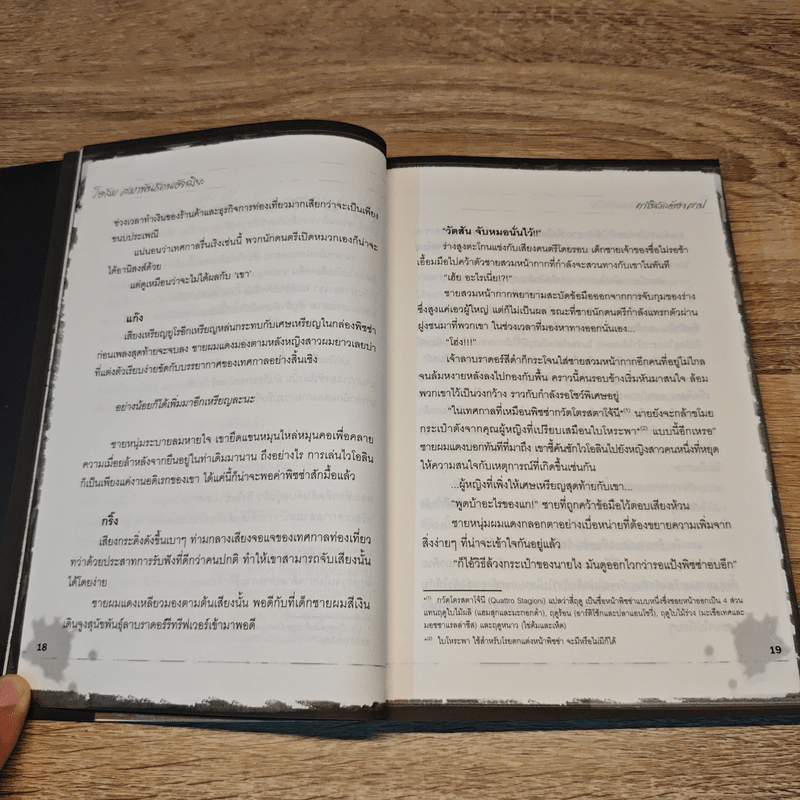 ช่วงเวลาทำเงินของร้านค้าและธุรกิจการท่องเที่ยวมากเสียกว่าจะเป็นเพียง
ขนบประเพณี
แน่นอนว่าเทศกาลรื่นเริงเช่นนี้ พวกนักดนตรีเปิดหมวกเองก็น่าจะ
ได้อานิสงส์ด้วย
แต่ดูเหมือนว่าจะไม่ได้ผลกับ 'เขา'
แก๊ง
เสียงเหรียญยูโรอีกเหรียญหล่นกระทบกับเศษเหรียญในกล่องพิซซ่า
ก่อนเพลงสุดท้ายจะจบลง ชายผมแดงมองตามหลังหญิงสาวผมยาวเลยบ่า
ที่แต่งตัวเรียบง่ายขัดกับบรรยากาศของเทศกาลอย่างสิ้นเชิง
อย่างน้อยก็ได้เพิ่มมาอีกเหรียญละนะ
ชายหนุ่มระบายลมหายใจ เขายืดแขนหมุนไหล่หมุนคอเพื่อคลาย
ความเมื่อยล้าหลังจากยืนอยู่ในท่าเดิมมานาน ถึงอย่างไร การเล่นไวโอลิน
ก็เป็นเพียงแค่งานอดิเรกของเขา ได้แค่นี้ก็น่าจะพอค่าพิซซ่าสักมื้อแล้ว
กริ๊ง
เสียงกระดิ่งดังขึ้นเบาๆ ท่ามกลางเสียงจอแจของเทศกาลท่องเที่ยว
ทว่าด้วยประสาทการรับฟังที่ดีกว่าคนปกติ ทำให้เขาสามารถจับเสียงนั้น
ได้โดยง่าย
ชายผมแดงเหลียวมองตามต้นเสียงนั้น พอดีกับที่เด็กชายผมสีเงิน
เดินจูงสุนัขพันธุ์ลาบราดอร์รีทรีฟเวอร์เข้ามาพอดี
18
"วัตสัน จับหมอนั่นไว้!!"
ร่างสูงตะโกนแข่งกับเสียงดนตรีโดยรอบ เด็กชายเจ้าของชื่อไม่รอช้า
เอื้อมมือไปคว้าตัวชายสวมหน้ากากที่กำลังจะสวนทางกับเขาในทันที
"เฮ้ย อะไรเนี่ย!?!"
ชายสวมหน้ากากพยายามสะบัดข้อมือออกจากการจับกุมของร่าง
ซึ่งสูงแค่เอวผู้ใหญ่ แต่ก็ไม่เป็นผล ขณะที่ชายนักดนตรีกำลังแทรกตัวผ่าน
ฝูงชนมาที่พวกเขา ในช่วงเวลาที่มองหาทางออกนั่นเอง...
"โฮ่ง!!!"
เจ้าลาบราดอร์สีดำก็กระโจนใส่ชายสวมหน้ากากอีกคนที่อยู่ไม่ไกล
จนล้มหงายหลังลงไปกองกับพื้น คราวนี้คนรอบข้างเริ่มหันมาสนใจ ล้อม
พวกเขาไว้เป็นวงกว้าง ราวกับกำลังรอโชว์พิเศษอยู่
"ในเทศกาลที่เหมือนพิซซ่ากวัตโตรสตาโจ้นี*⁽¹⁾ นายยังจะกล้าขโมย
กระเป๋าตังจากคุณผู้หญิงที่เปรียบเสมือนใบโหระพา*⁽²⁾ แบบนี้อีกเหรอ"
ชายผมแดงบอกทันทีที่มาถึง เขาชี้คันชักไวโอลินไปยังหญิงสาวคนหนึ่งที่หยุด
ให้ความสนใจกับเหตุการณ์ที่เกิดขึ้นเช่นกัน
...ผู้หญิงที่เพิ่งให้เศษเหรียญสุดท้ายกับเขา...
"พูดบ้าอะไรของแก!" ชายที่ถูกคว้าข้อมือไว้ตอบเสียงห้วน
ชายหนุ่มผมแดงกลอกตาอย่างเบื่อหน่ายที่ต้องขยายความเพิ่มจาก
สิ่งง่ายๆ ที่น่าจะเข้าใจกันอยู่แล้ว
"ก็ไอ้วิธีล้วงกระเป๋าของนายไง มันดูออกไวกว่ารอแป้งพิซซ่าอบอีก"
*⁽¹⁾ กวัตโตรสตาโจ้นี (Quattro Stagioni) แปลว่าสี่ฤดู เป็นชื่อหน้าพิซซ่าแบบหนึ่งซึ่งซอยหน้าออกเป็น 4 ส่วน
แทนฤดูใบไม้ผลิ (แฮมสุกและมะกอกดำ), ฤดูร้อน (อาร์ติโช้กและปลาแอนโชวี่), ฤดูใบไม้ร่วง (มะเขือเทศและ
มอซซาเรลล่าชีส) และฤดูหนาว (ไข่ต้มและเห็ด)
*⁽²⁾ ใบโหระพา ใช้สำหรับโรยตกแต่งหน้าพิซซ่า จะมีหรือไม่มีก็ได้
19